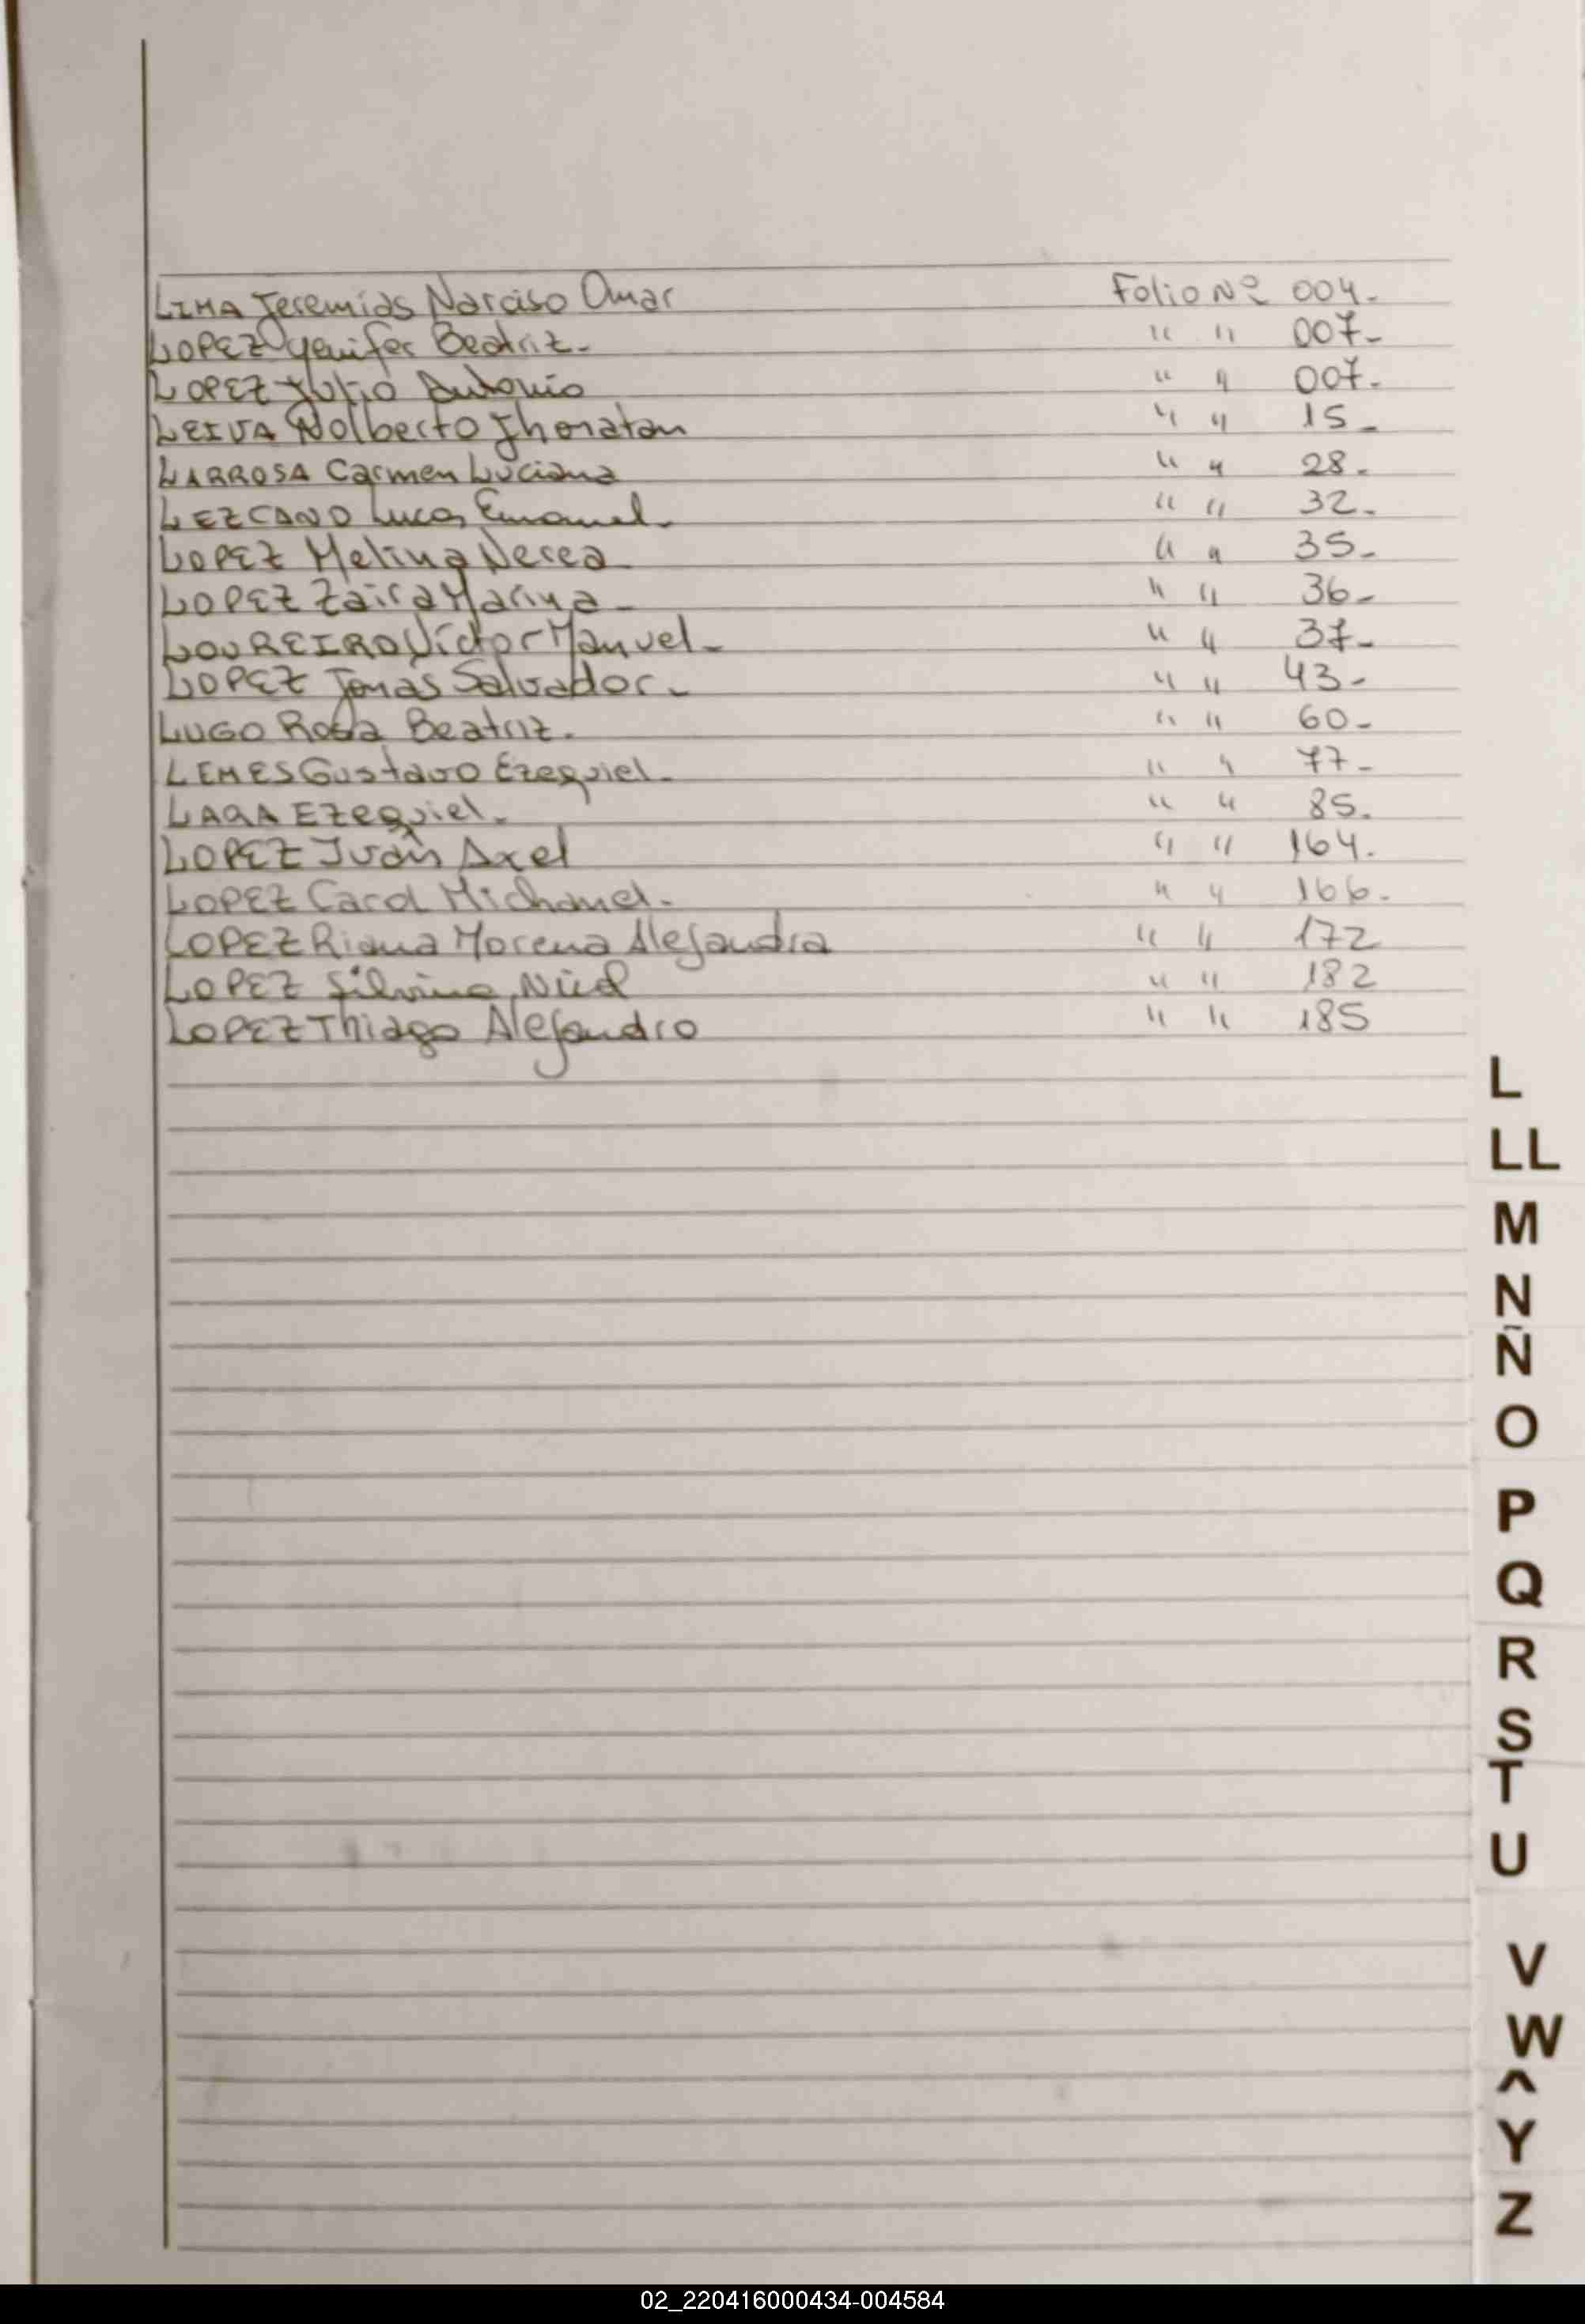 LIMA Jeremias Narciso Omar Folio Nº 004.-
LOPEZ Yenifer Beatriz.- " " 007.-
LOPEZ Julio Antonio " " 007.-
LEIVA Nolberto Jhonatan " " 15.-
LARROSA Carmen Luciana " " 28.-
LEZCANO Lucas Emanuel.- " " 32.-
LOPEZ Melina Nerea " " 35.-
LOPEZ Zaira Marina.- " " 36.-
LOUREIRO Víctor Manuel.- " " 37.-
LOPEZ Jonas Salvador.- " " 43.-
LUGO Rosa Beatriz.- " " 60.-
LEMES Gustavo Ezequiel.- " " 77.-
LARA Ezequiel.- " " 85.
LOPEZ Iván Axel " " 164.
LOPEZ Carol " " 166.-
LOPEZ Morena Alejandra " " 172
LOPEZ Silvina " " 182
LOPEZ Thiago Alejandro " " 185
L
LL
M
N
Ñ
O
P
Q
R
S
T
U
V
W
Y
Z
02_220416000434-004584